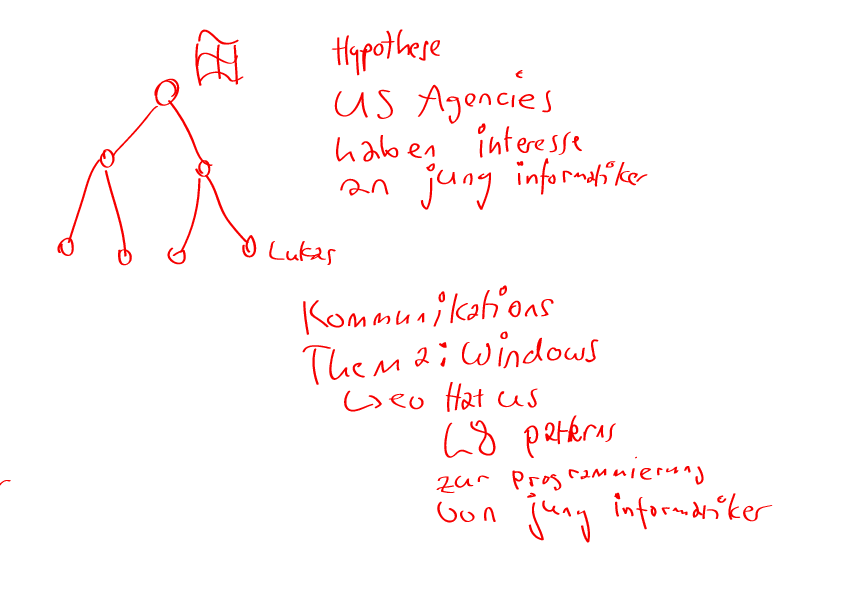 Hypothese
US Agencies
haben interesse
an jung informatiker
Lukas
Kommunikations
Thema: Windows
↳ eo Hat US
L8 patterns
zur programmierung
von jung informatiker